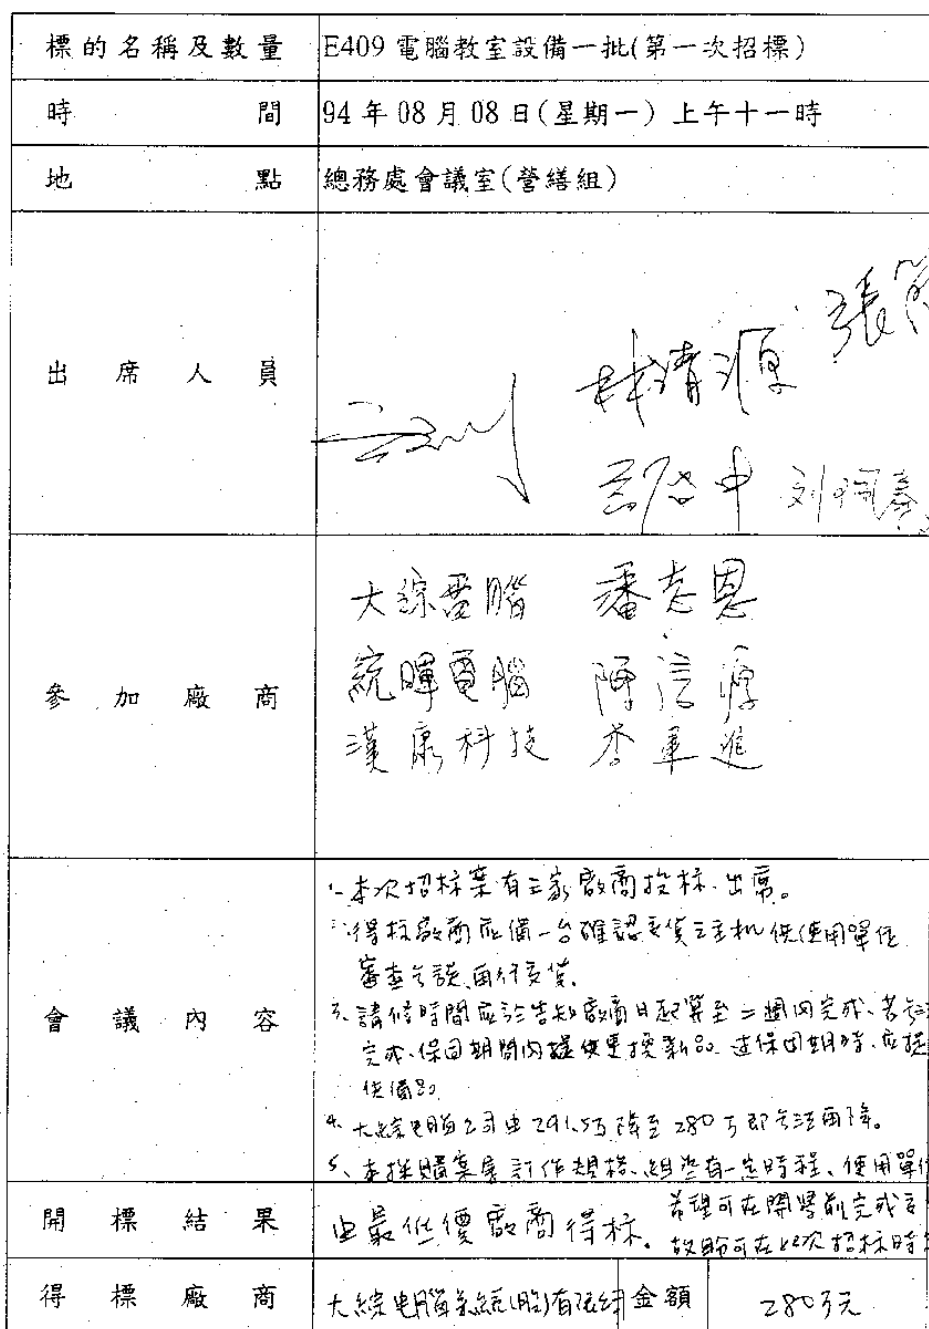 標的名稱及數量 E409電腦教室設備一批(第一次招標)
時間 94年08月08日(星期一)上午十一時
地點 總務處會議室(營繕組)
出席人員
張
林清源
中 刘
參加廠商
大綜電腦 潘志恩
統暉電腦 陳信源
漢康科技 李軍進
會議內容
1. 本次招标案有三家廠商投标、出席。
得标廠商应備一台確認交貨之主机供使用單位
審查 再行交貨。
3. 請修時間应於告知廠商日起算至二週內完成、若
完成、保固期間內提供更換新品 過保固期時、应提
供備品
4. 大綜电腦公司由291.5万降至280万即无法再降。
5. 本採購案 訂作規格、組 有一定時程、使用單位
希望可在開學前完成
開標結果 由最低價廠商得标。
可在此次招标時
得標廠商 大綜电腦系統(股)有限 金額 280万元